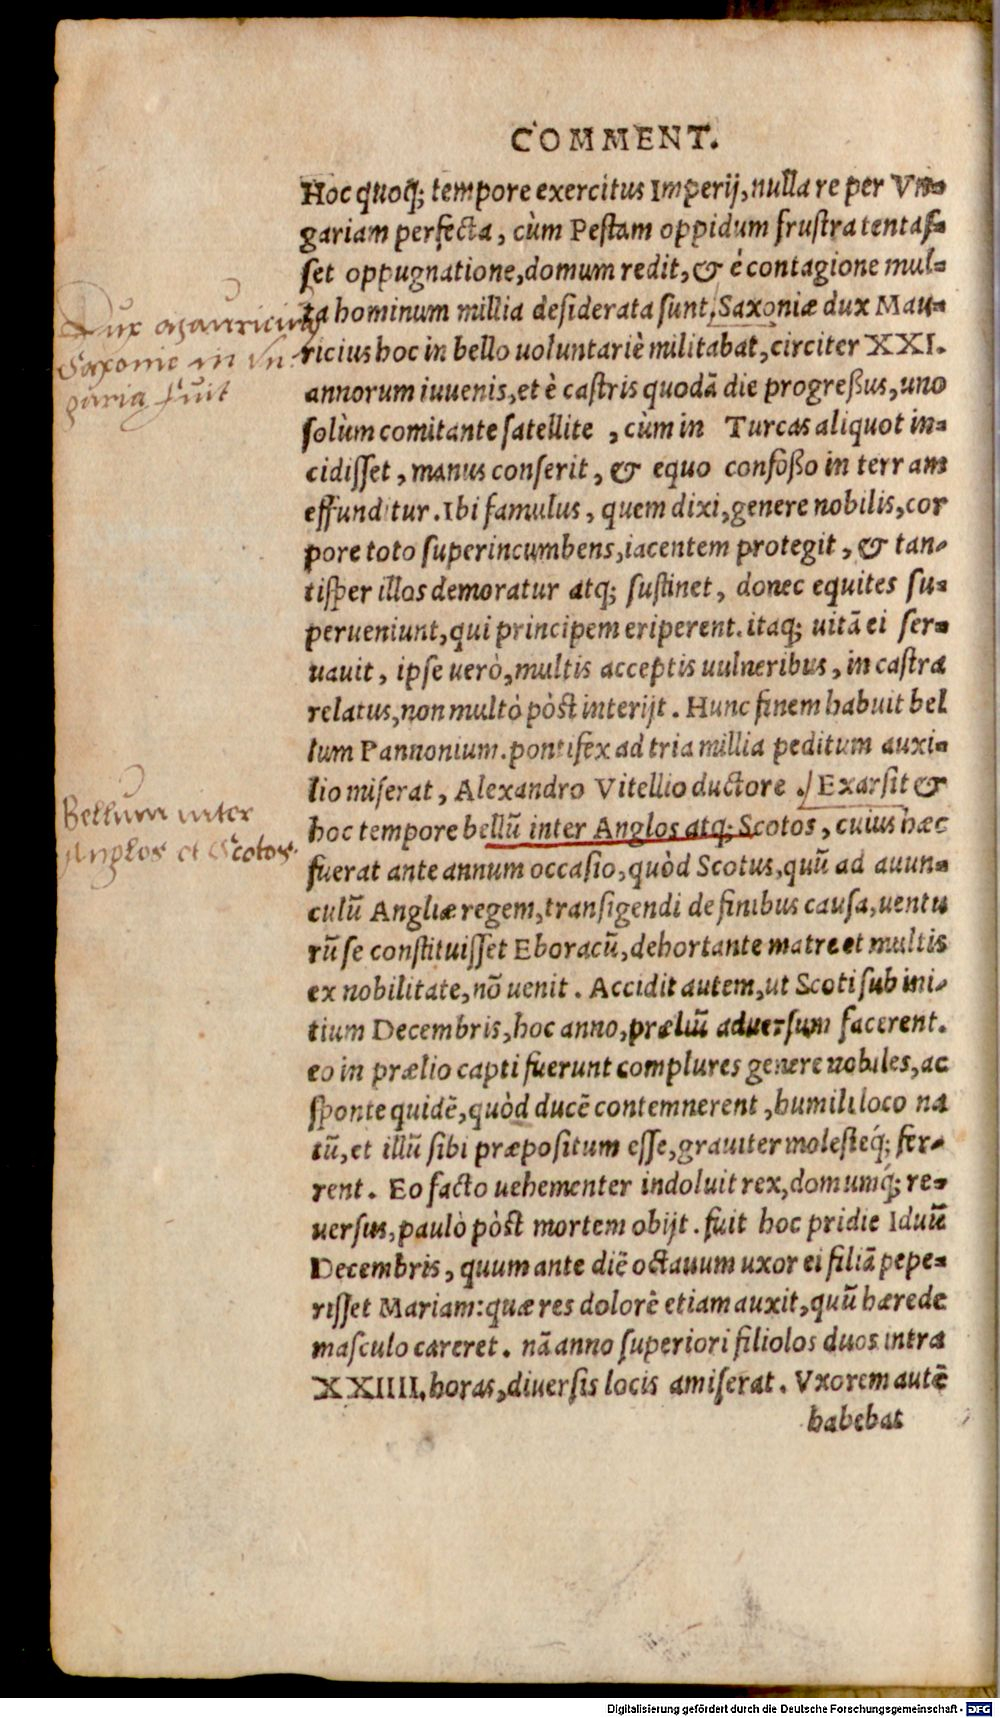 COMMENT.
Hoc quoq; tempore exercitus Imperij, nulla re per Vn-
gariam perfecta, cùm Pestam oppidum frustra tentas-
set oppugnatione, domum redit, & è contagione mul-
ta hominum millia desiderata sunt. Saxoniæ dux Mau-
Dux Mauricius
Saxonie in Vn-
garia fuit
ricius hoc in bello uoluntariè militabat, circiter XXI.
annorum iuuenis, et è castris quodã die progreßus, uno
solùm comitante satellite , cùm in Turcas aliquot in-
cidisset, manus conserit, & equo confoßo in terram
effunditur. Ibi famulus, quem dixi, genere nobilis, cor
pore toto superincumbens, iacentem protegit, & tan-
tisper illos demoratur atq; sustinet, donec equites su-
perueniunt, qui principem eriperent. itaq; uitã ei ser-
uauit, ipse uerò, multis acceptis uulneribus, in castra
relatus, non multò pòst interijt. Hunc finem habuit bel
lum Pannonium. pontifex ad tria millia peditum auxi-
lio miserat, Alexandro Vitellio ductore . Exarsit &
Bellum inter
Anglos et Scotos.
hoc tempore bellũ inter Anglos atq; Scotos, cuius hæc
fuerat ante annum occasio, quòd Scotus, quũ ad auun-
culũ Angliæ regem, transigendi de finibus causa, uentu
rũ se constituisset Eboracũ, dehortante matre et multis
ex nobilitate, nõ uenit. Accidit autem, ut Scoti sub ini-
tium Decembris, hoc anno, præliũ aduersum facerent.
eo in prælio capti fuerunt complures genere nobiles, ac
sponte quidẽ, quòd ducẽ contemnerent, humili loco na
tũ, et illũ sibi præpositum esse, grauiter molesteq́; fer-
rent. Eo facto uehementer indoluit rex, domumq́; re-
uersus, paulò pòst mortem obijt. fuit hoc pridie Iduũ
Decembris, quum ante diẽ octauum uxor ei filiã pepe-
risset Mariam: quæ res dolorẽ etiam auxit, quũ hærede
masculo careret. nã anno superiori filiolos duos intra
XXIIII. horas, diuersis locis amiserat. Vxorem autẽ
habebat
Digitalisierung gefördert durch die Deutsche Forschungsgemeinschaft - DFG